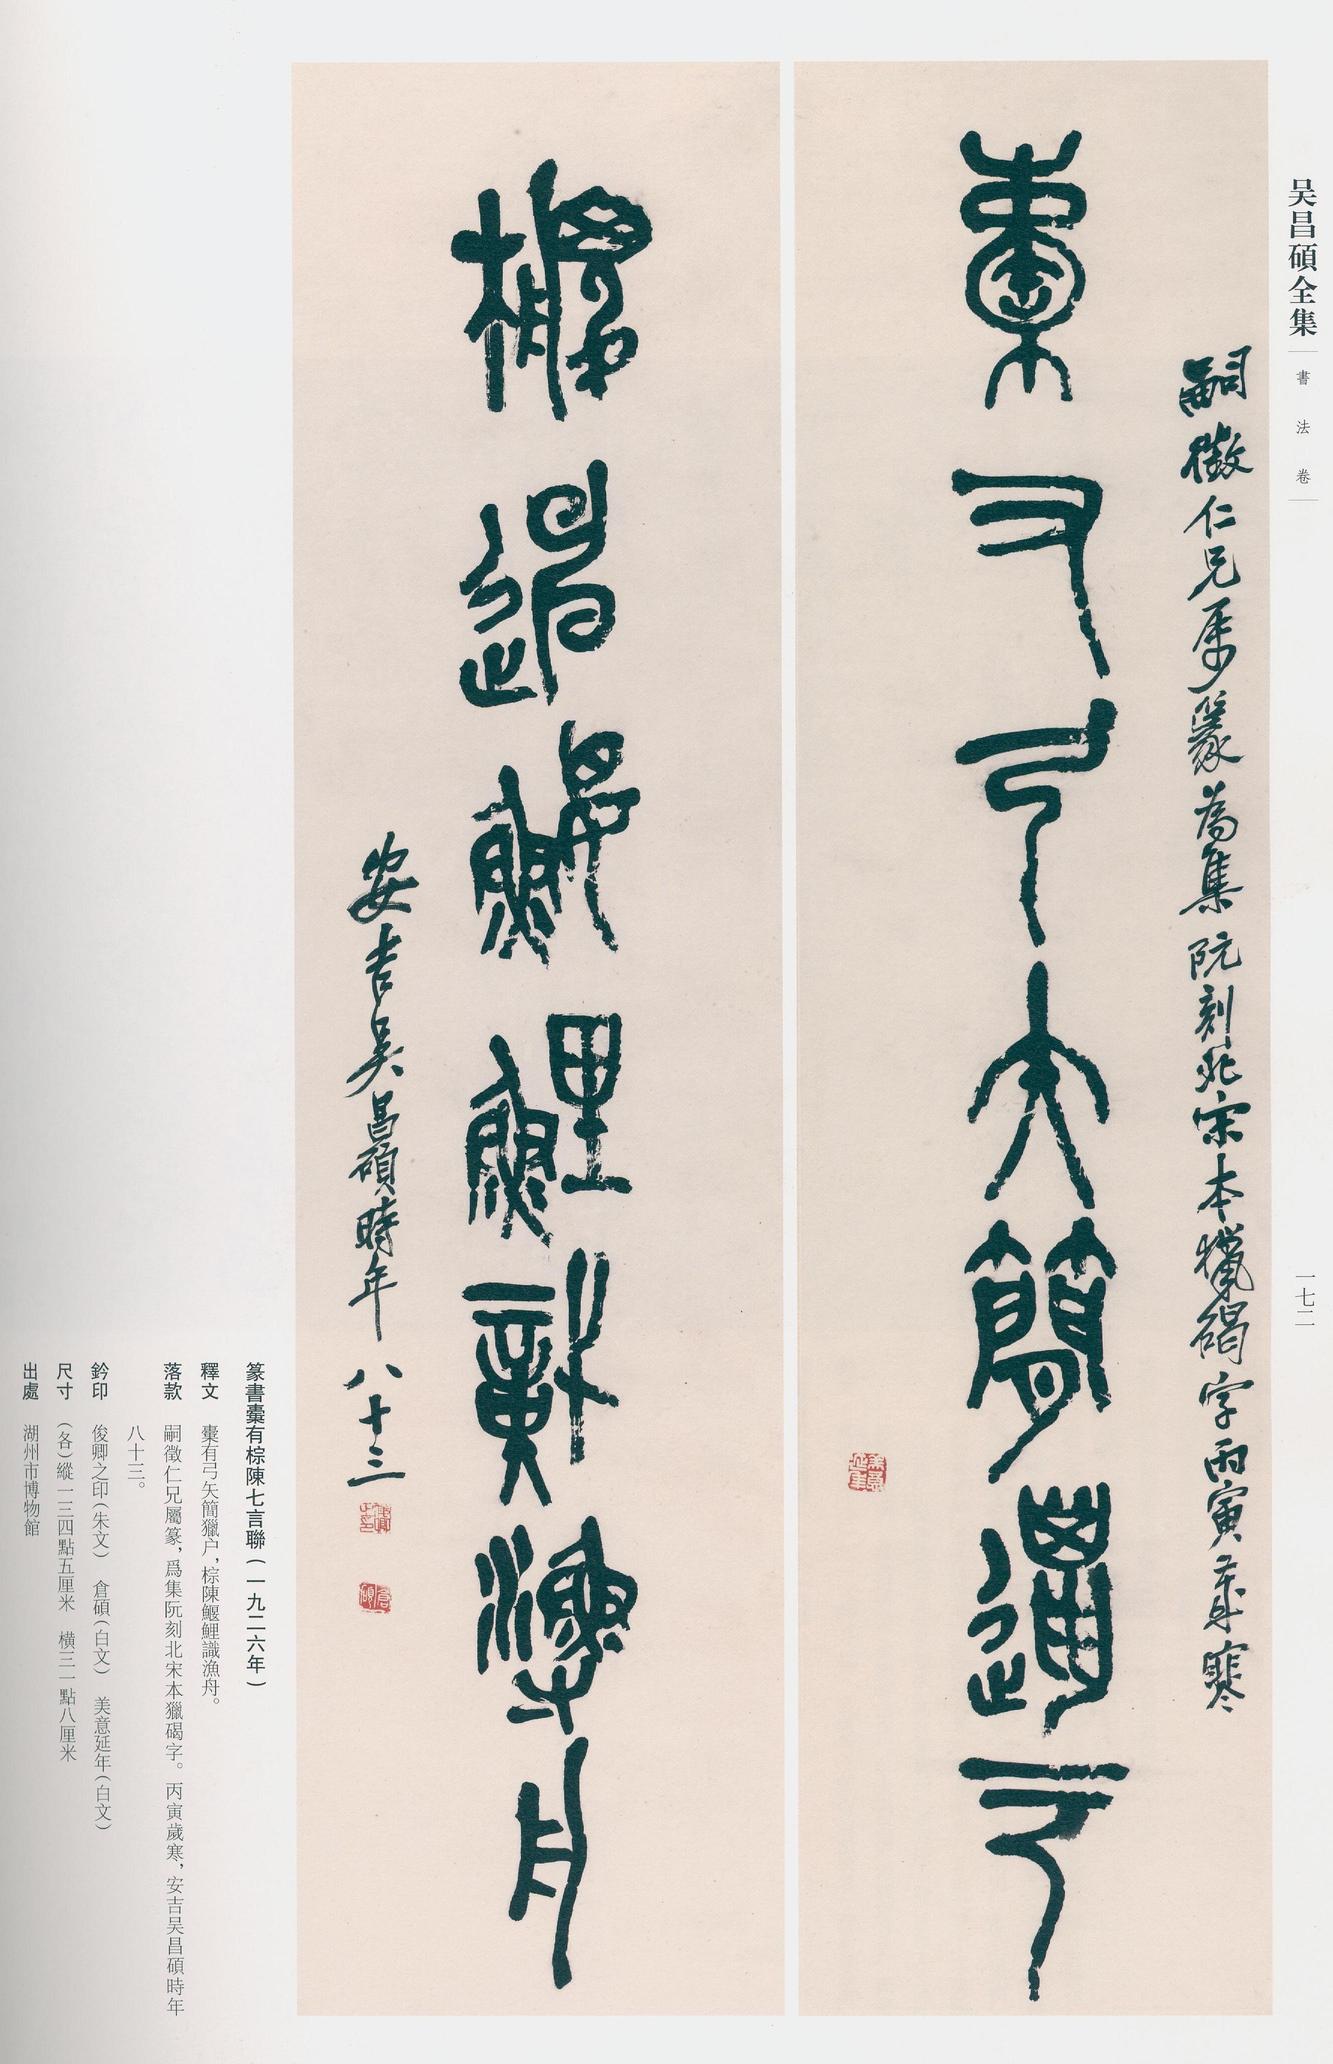 吴昌碩全集
書法卷
一七二
嗣徵仁兄屬篆為集阮刻北宋本獵碣字丙寅歲寒
橐有弓矢簡獵户
美意延年
棕陳鰋鯉識漁舟
安吉吴昌碩時年八十三
俊卿之印
倉碩
篆書橐有棕陳七言聯（一九二六年）
釋文 橐有弓矢簡獵户，棕陳鰋鯉識漁舟。
落款 嗣徵仁兄屬篆，爲集阮刻北宋本獵碣字。丙寅歲寒，安吉吴昌碩時年
八十三。
鈐印 俊卿之印（朱文） 倉碩（白文） 美意延年（白文）
尺寸 （各）縱一三四點五厘米 橫三一點八厘米
出處 湖州市博物館